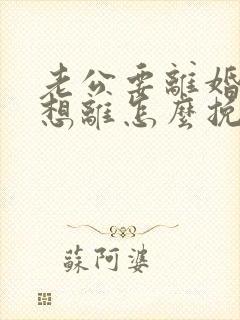 老公要離婚
想離怎麼挽
蘇阿婆